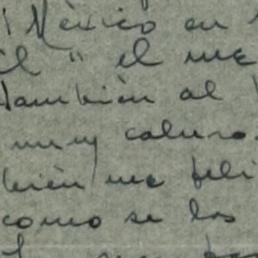 México en
él" el me
también al
muy caluro
bién me feli
como se los